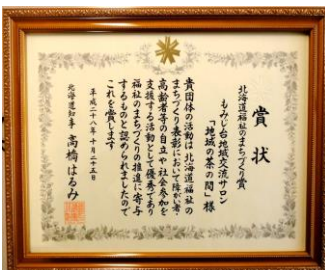 賞状
北海道福祉のまちづくり賞
もみじ台地域交流サロン
「地域の茶の間」様
貴団体の活動は北海道福祉の
まちづくり表彰において障がい者・
高齢者等の自立や社会参加を
支援する活動として優秀であり
福祉のまちづくりの推進に寄与
するものと認められましたので
これを賞します
平成二十八年十月二十五日
北海道知事 高橋はるみ